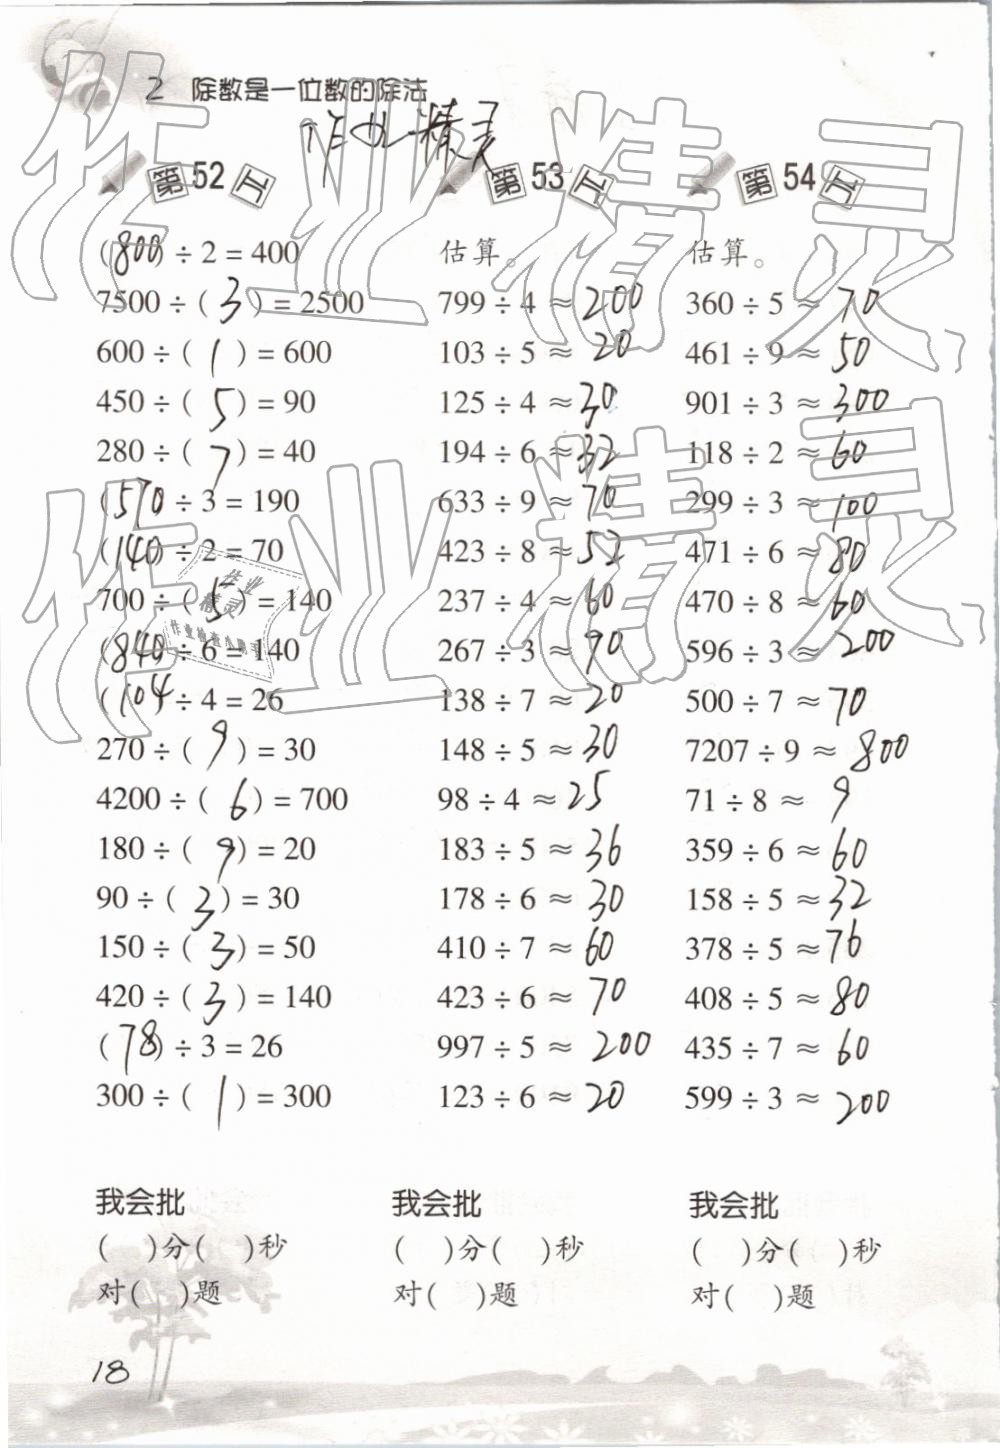 2 除数是一位数的除法
作业精灵
第52工
(800) ÷ 2 = 400
7500 ÷ ( 3 ) = 2500
600 ÷ ( 1 ) = 600
450 ÷ ( 5 ) = 90
280 ÷ ( 7 ) = 40
(570) ÷ 3 = 190
(140) ÷ 2 = 70
700 ÷ ( 5 ) = 140
(840) ÷ 6 = 140
(104) ÷ 4 = 26
270 ÷ ( 9 ) = 30
4200 ÷ ( 6 ) = 700
180 ÷ ( 9 ) = 20
90 ÷ ( 3 ) = 30
150 ÷ ( 3 ) = 50
420 ÷ ( 3 ) = 140
(78) ÷ 3 = 26
300 ÷ ( 1 ) = 300
我会批
( )分( )秒
对( )题
第53工
估算。
799 ÷ 4 ≈ 200
103 ÷ 5 ≈ 20
125 ÷ 4 ≈ 30
194 ÷ 6 ≈ 32
633 ÷ 9 ≈ 70
423 ÷ 8 ≈ 52
237 ÷ 4 ≈ 60
267 ÷ 3 ≈ 90
138 ÷ 7 ≈ 20
148 ÷ 5 ≈ 30
98 ÷ 4 ≈ 25
183 ÷ 5 ≈ 36
178 ÷ 6 ≈ 30
410 ÷ 7 ≈ 60
423 ÷ 6 ≈ 70
997 ÷ 5 ≈ 200
123 ÷ 6 ≈ 20
我会批
( )分( )秒
对( )题
第54工
估算。
360 ÷ 5 ≈ 70
461 ÷ 9 ≈ 50
901 ÷ 3 ≈ 300
118 ÷ 2 ≈ 60
299 ÷ 3 ≈ 100
471 ÷ 6 ≈ 80
470 ÷ 8 ≈ 60
596 ÷ 3 ≈ 200
500 ÷ 7 ≈ 70
7207 ÷ 9 ≈ 800
71 ÷ 8 ≈ 9
359 ÷ 6 ≈ 60
158 ÷ 5 ≈ 32
378 ÷ 5 ≈ 76
408 ÷ 5 ≈ 80
435 ÷ 7 ≈ 60
599 ÷ 3 ≈ 200
我会批
( )分( )秒
对( )题
18
作业精灵
作业精灵
作业
精灵